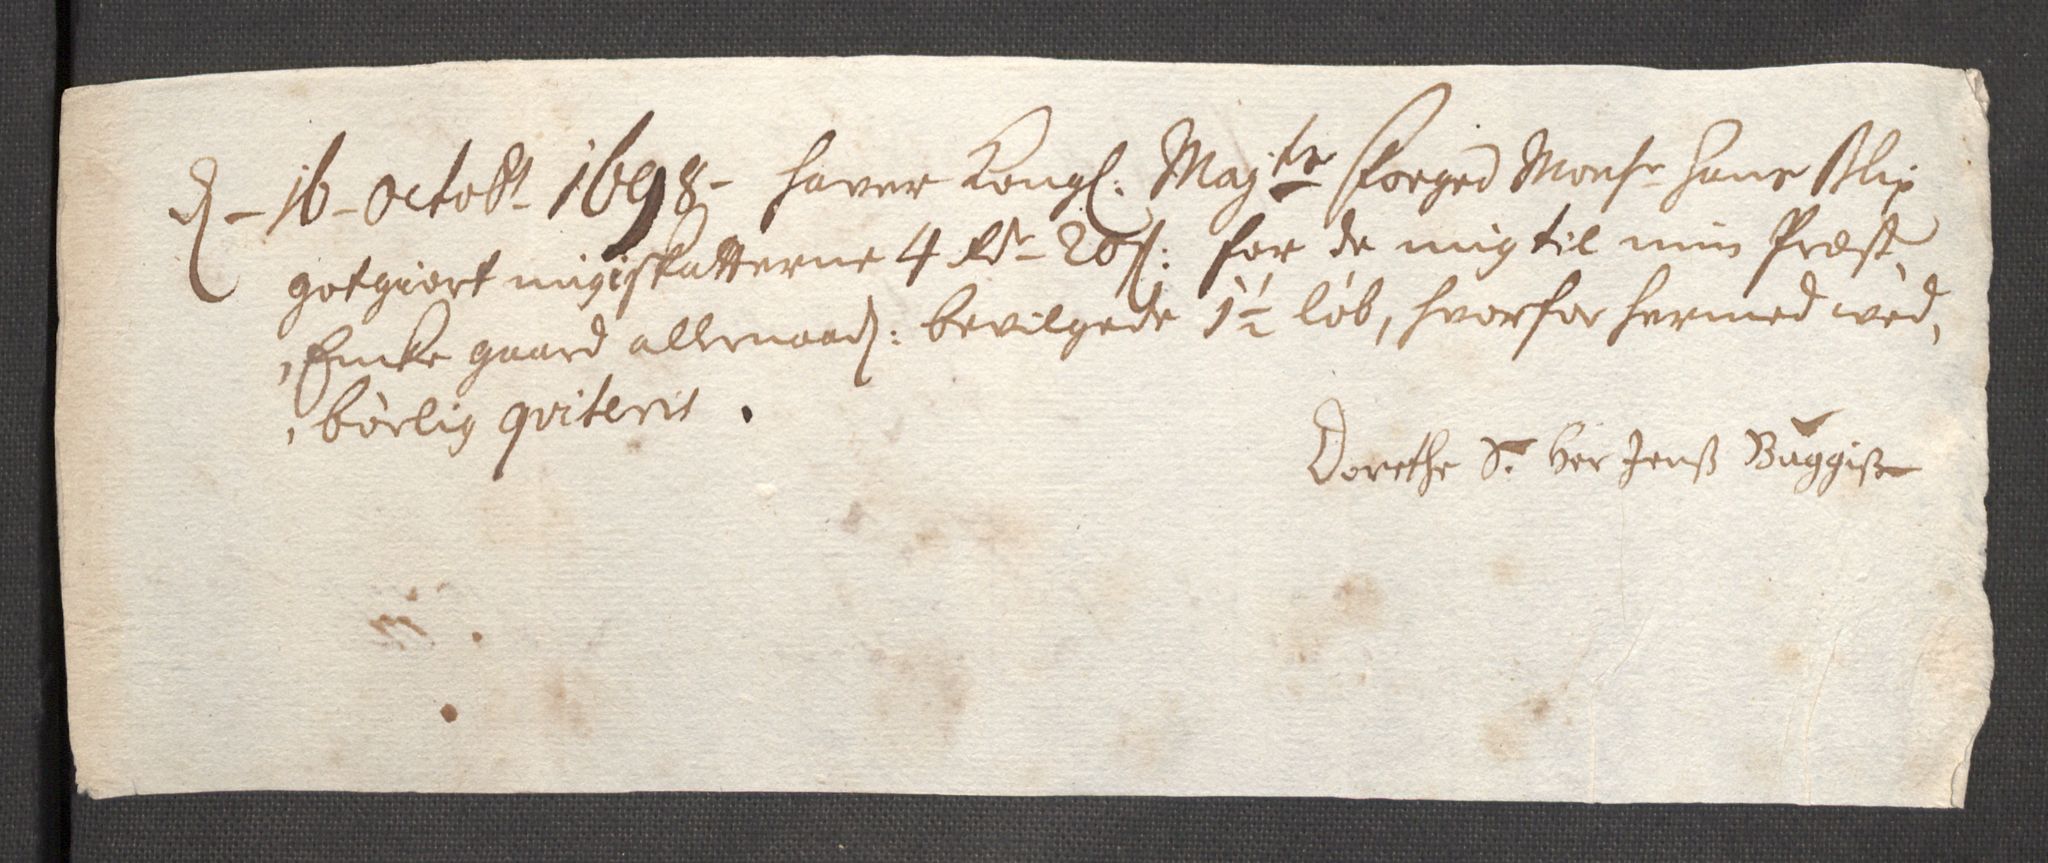 d – 16 – octobr – 1698 – haver Kongl: Maj:ts foeged Monsr Hans Blix
gotgiort mig i skatterne 4 Rdr – 20 s: for de mig til min Præst,
,Encke gaard allernaad: bevilgede 1½ løb, hvorfor hermed wed,
,børlig qviteris .
Dorethe S. Her Jenß Buggiß